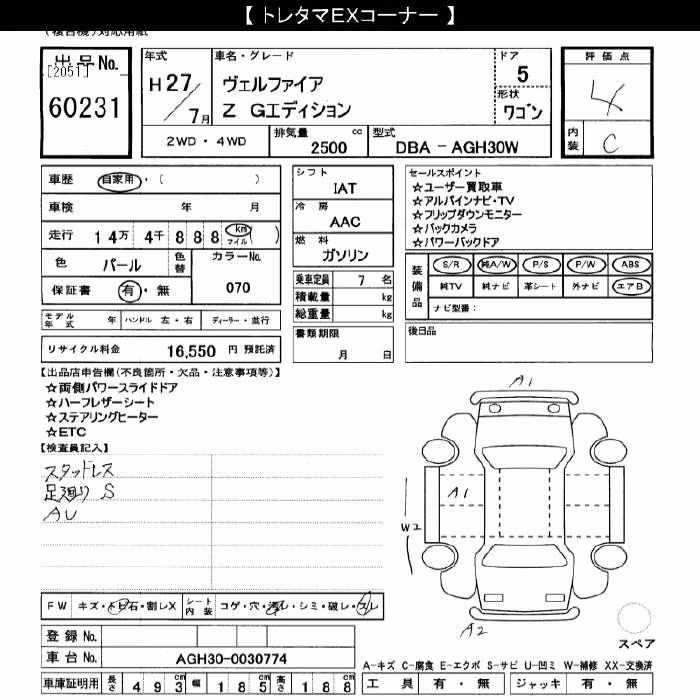 【 トレタマEXコーナー 】
(複合機)対応用紙
出品No.
[2051]
60231
年式
H 27/7月
車名・グレード
ヴェルファイア
Z Gエディション
ドア
5
形状
ワゴン
評価点
4
内装
C
2WD・4WD
排気量 2500 cc
型式 DBA - AGH30W
車歴 自家用・( )
車検 年 月
走行 14万 4千 8 8 8 km マイル ( )
色 パール
色替
カラーNo. 070
保証書 有・無
シフト
IAT
冷房
AAC
燃料
ガソリン
乗車定員 7 名
積載量 kg
総重量 kg
書類期限
月 日
セールスポイント
☆ユーザー買取車
☆アルパインナビ・TV
☆フリップダウンモニター
☆バックカメラ
☆パワーバックドア
装備品
S/R 純A/W P/S P/W ABS
純TV 純ナビ 革シート 外ナビ エアB
ナビ型番:
後日品
モデル年式 年 ハンドル 左・右 ディーラー・並行
リサイクル料金 16,550 円 預託済
【出品店申告欄(不良箇所・欠品・注意事項等)】
☆両側パワースライドドア
☆ハーフレザーシート
☆ステアリングヒーター
☆ETC
【検査員記入】
スタッドレス
足廻り S
AU
A1
A1
W2
A2
スペア
FW キズ・トビ石・割レX
シート内装 コゲ・穴・汚レ・シミ・破レ・スレ
登録No.
車台No. AGH30-0030774
車庫証明用 長さ 493 幅 185 高さ 188
A-キズ C-腐食 E-エクボ S-サビ U-凹ミ W-補修 XX-交換済
工具 有・無 ジャッキ 有・無